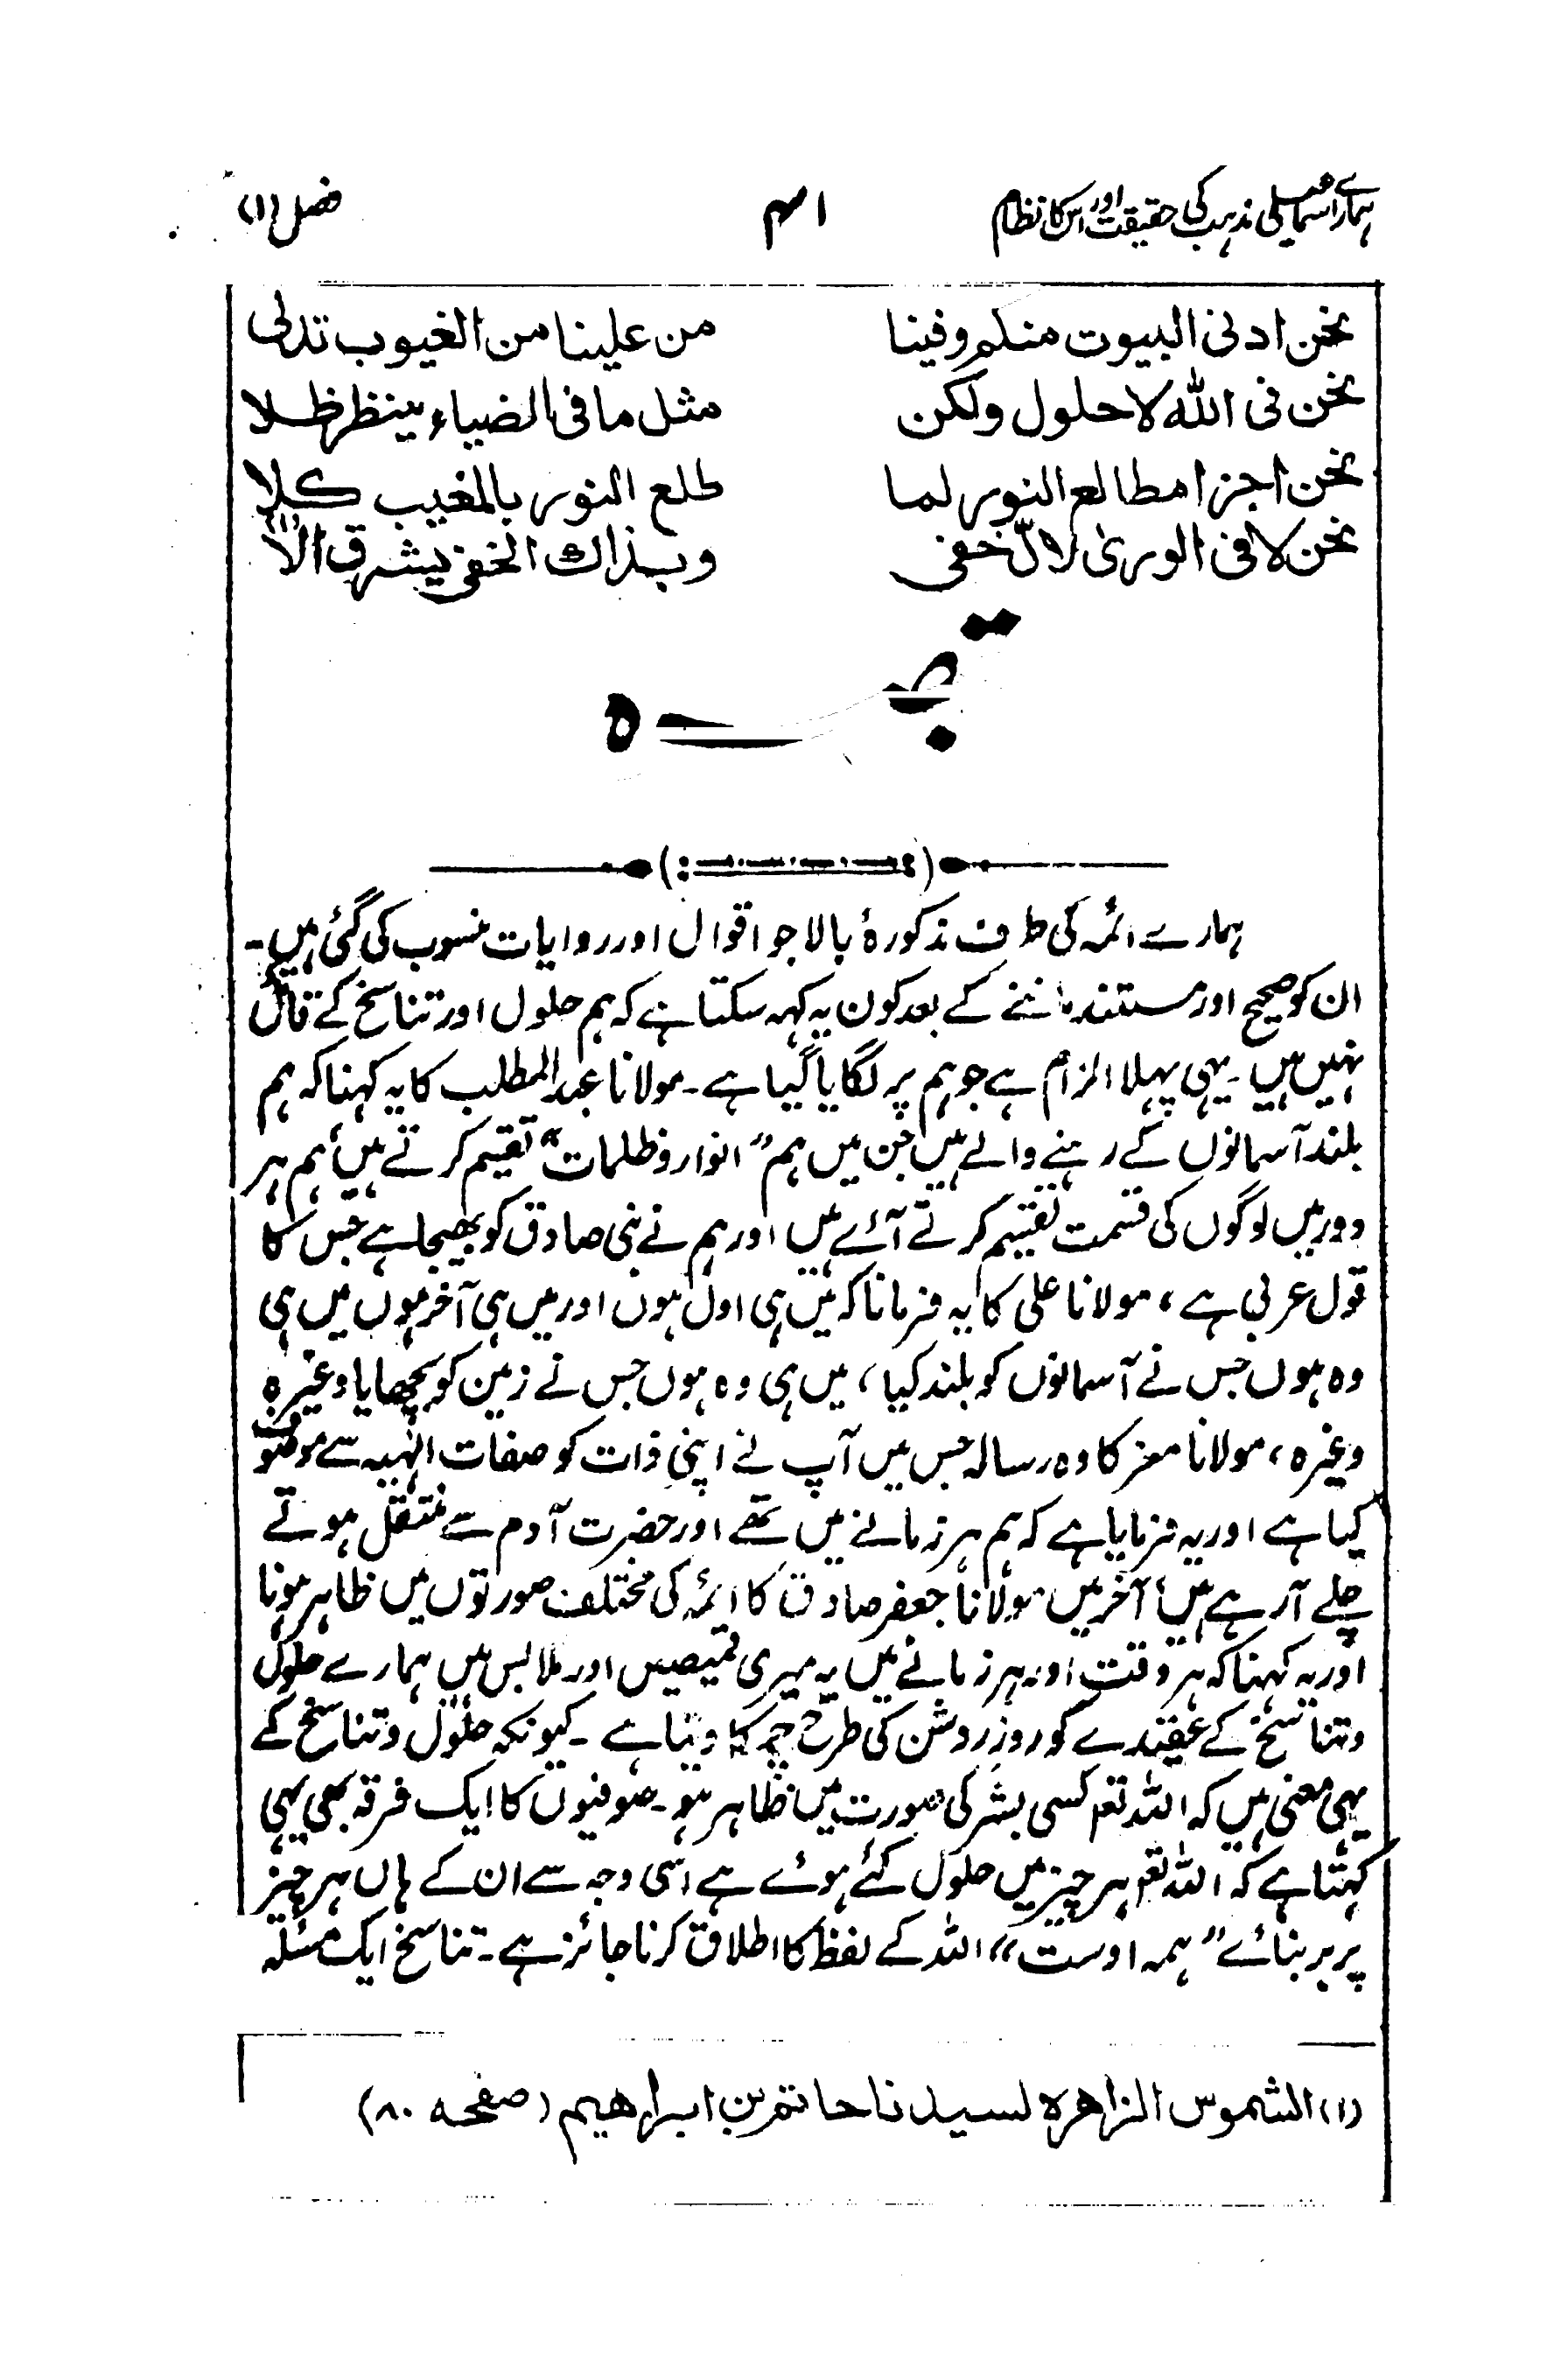 ہمارے اسماعیلی مذہب کی حقیقت اور اس کا نظام ۴۱ فصل (۱)
نحن ادنی البیوت منکم وفینا من علینا من الغیوب تدلی
نحن فی اللہ لا حلول ولکن مثل ما فی الضیاء ینظر ظلا
نحن اجزا مطالع النور لما طلع النور بالمغیب کلا
نحن لا فی الوریٰ لالّ خفی وبذاك الخفی یشرق الّا (۱)
تبصرہ
ہمارے ائمہ کی طرف مذکورۂ بالا جو اقوال اور روایات منسوب کی گئی ہیں۔
ان کو صحیح اور مستند ماننے کے بعد کون یہ کہہ سکتا ہے کہ ہم حلول اور تناسخ کے قائل
نہیں ہیں۔ یہی پہلا الزام ہے جو ہم پر لگایا گیا ہے۔ مولانا عبد المطلب کا یہ کہنا کہ ہم
بلند آسمانوں کے رہنے والے ہیں جن میں ہم ”انوار و ظلمات“ تقسیم کرتے ہیں، ہم ہر
دور میں لوگوں کی قسمت تقسیم کرتے آئے ہیں اور ہم نے نبی صادق کو بھیجا ہے جس کا
قول عربی ہے، مولانا علی کا یہ فرمانا کہ میں ہی اول ہوں اور میں ہی آخر ہوں میں ہی
وہ ہوں جس نے آسمانوں کو بلند کیا، میں ہی وہ ہوں جس نے زمین کو بچھایا وغیرہ
وغیرہ، مولانا معز کا وہ رسالہ جس میں آپ نے اپنی ذات کو صفات الٰہیہ سے موصوف
کیا ہے اور یہ فرمایا ہے کہ ہم ہر زمانے میں تھے اور حضرت آدم سے منتقل ہوتے
چلے آرہے ہیں، آخر میں مولانا جعفر صادق کا ائمہ کی مختلف صورتوں میں ظاہر ہونا
اور یہ کہنا کہ ہر وقت اور ہر زمانے میں یہ میری قمیصیں اور ملابس ہیں ہمارے حلول
و تناسخ کے عقیدے کو روزِ روشن کی طرح چمکا دیتا ہے۔ کیونکہ حلول و تناسخ کے
یہی معنی ہیں کہ اللہ تعہ کسی بشر کی صورت میں ظاہر ہو۔ صوفیوں کا ایک فرقہ بھی یہی
کہتا ہے کہ اللہ تعہ ہر چیز میں حلول کئے ہوئے ہے اسی وجہ سے ان کے ہاں ہر چیز
پر بر بنائے ”ہمہ اوست“ اللہ کے لفظ کا اطلاق کرنا جائز ہے۔ تناسخ ایک مسئلہ
(۱) الشموس الزاهرہ لسیدنا حاتم بن ابراهیم (صفحہ ۸۰)